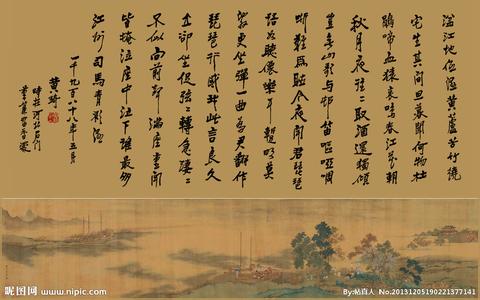 湓江地低湿黄蘆苦竹繞
宅生其间旦暮聞何物杜
鵑啼血猿哀鳴春江花朝
秋月夜往往取酒還獨傾
豈無山歌与邨笛嘔啞嘲
哳難為聽今夜聞君琵琶
語如聽僊樂耳暫明莫
辭更坐彈一曲為君翻作
琵琶行感我此言良久
立卻坐促弦弦轉急淒淒
不似向前聲滿座重聞
皆掩泣座中泣下誰最多
江州司馬青衫濕
一千九百八十八年五月
黄琦
昵图网 www.nipic.com
By:帖真人 No.20131205190221377141